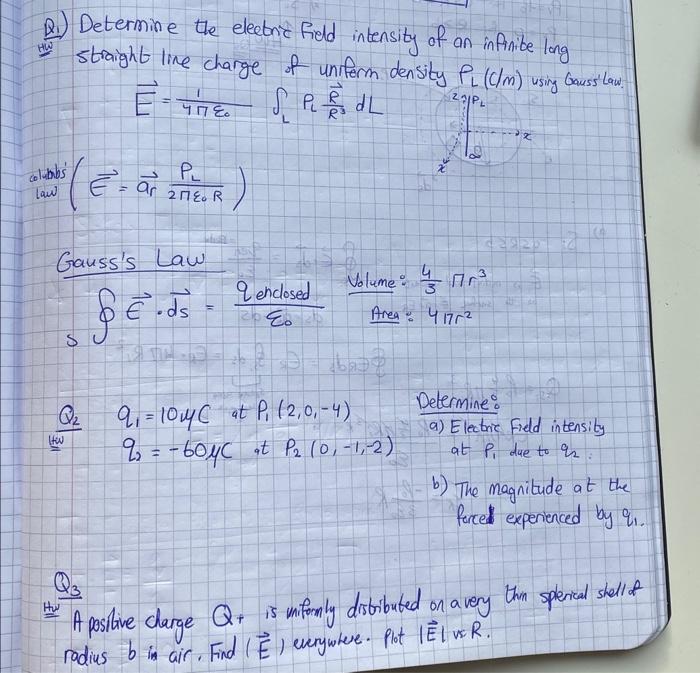 Q1) Determine the electric Field intensity of an infinite long
HW
straight line charge of uniform density PL (C/m) using Gauss' Law.
E⃗ = 1/4πε₀ ∫L PL R⃗/R³ dL
z PL
x
Law ( E⃗ = a⃗r PL/2πε₀R )
Gauss's Law
Volume: 4/3 πr³
∮S E⃗ · d⃗s = q enclosed/ε₀
Area: 4πr²
Q2 q₁ = 10μC at P₁ (2,0,-4) Determine:
HW q₂ = -60μC at P₂ (0,-1,-2) a) Electric Field intensity
at P₁ due to q₂.
b) The magnitude at the
forced experienced by q₁.
Q3
HW A positive charge Q+ is uniformly distributed on a very thin sperical shell of
radius b in air. Find (E⃗) everywhere. Plot |E⃗| vs R.